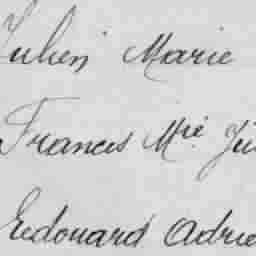 Julien Marie
Francis Mie Ju
Edouard Adrie